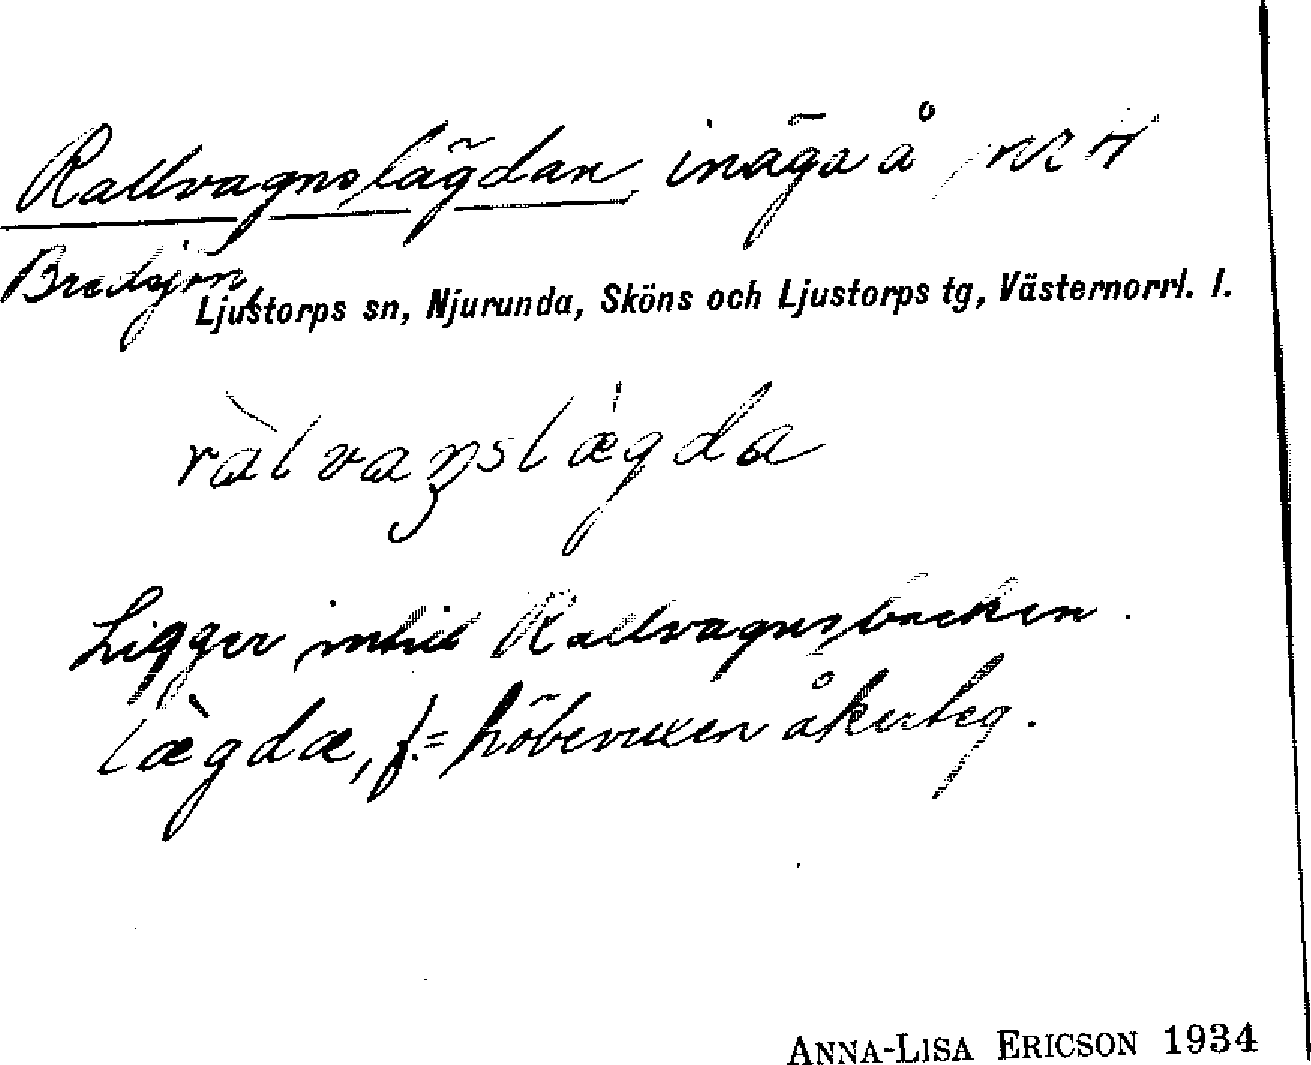 Rallvagnslägdan, inäga å nr 4
Bredsjön,
Ljustorps sn, Njurunda, Sköns och Ljustorps tg, Västernorrl. l.
ràlvaŋslǽgda
Ligger intill Rallvagnsbacken.
læ̀gdæ, f. = höbevuxen åkerteg.
ANNA-LISA ERICSON 1934